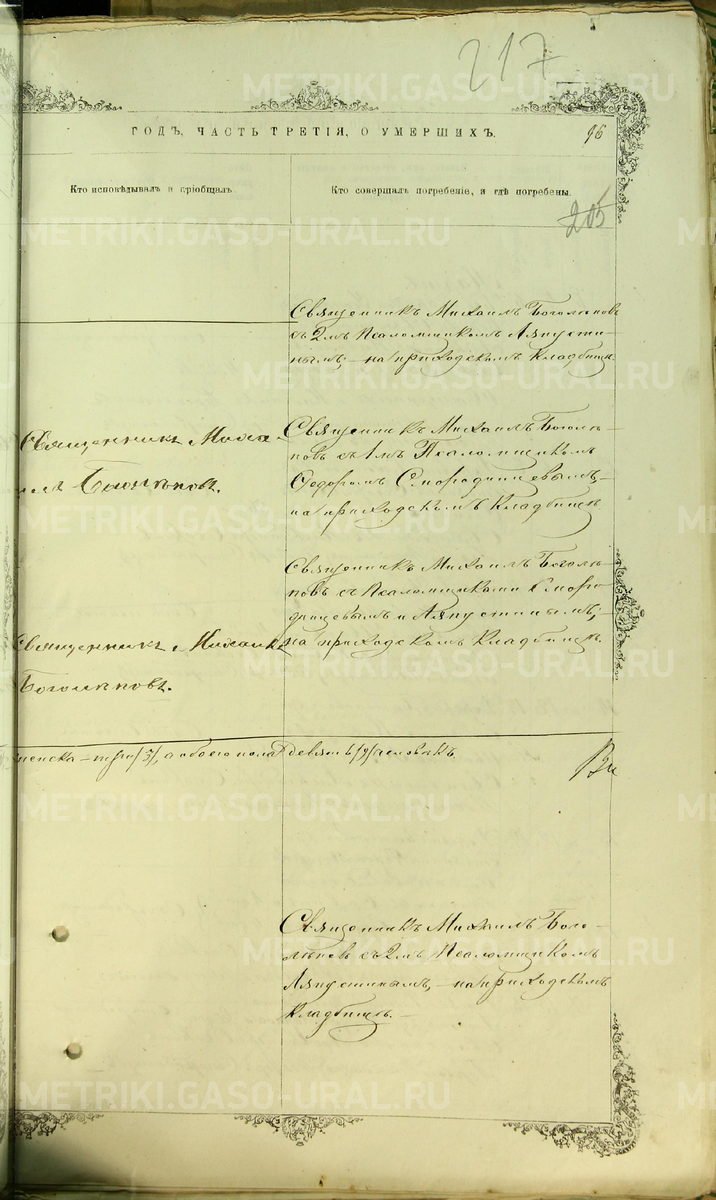 217
ГОДЪ, ЧАСТЬ ТРЕТІЯ, О УМЕРШИХЪ.
96
Кто исповѣдывалъ и пріобщалъ.
Кто совершалъ погребеніе, и гдѣ погребены.
205
Священникъ Михаилъ Боголѣповъ
съ 2мъ Псаломщикомъ Ляпусти-
нымъ, – на приходскомъ кладбищѣ
Священникъ Миха-
илъ Боголѣповъ.
Священникъ Михаилъ Боголѣ-
повъ съ 1мъ Псаломщикомъ
Ѳедоромъ Смородинцевымъ,
на приходскомъ кладбищѣ
Священникъ Михаилъ
Боголѣповъ.
Священникъ Михаилъ Боголѣ-
повъ съ Псаломщиками Сморо-
динцевымъ и Ляпустинымъ,
на приходскомъ кладбищѣ.
женска – три /3/, а обоего пола девять /9/ человѣкъ
Священникъ Михаилъ Бого-
лѣповъ съ 2мъ Псаломщикомъ
Ляпустинымъ, – на приходскомъ
кладбищѣ. –
METRIKI.GASO-URAL.RU